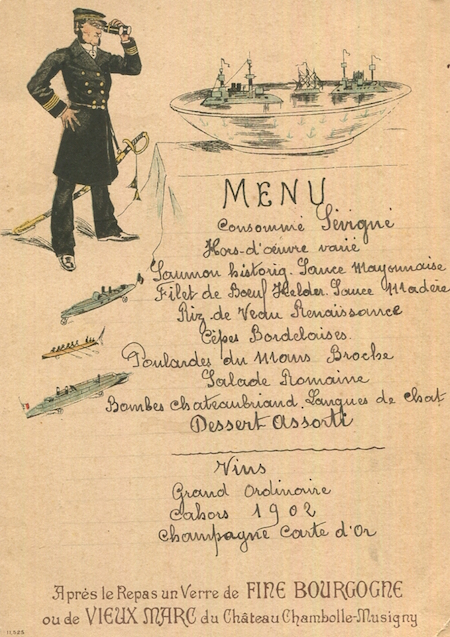 MENU
Consommé Sévigné
Hors-d'œuvre varié
Saumon historiq. Sauce Mayonnaise
Filet de Bœuf Helder. Sauce Madère
Riz de Veau Renaissance
Cèpes Bordelaises
Poulardes du Mans Broche
Salade Romaine
Bombes Chateaubriand. Langues de Chat
Dessert Assorti
Vins
Grand Ordinaire
Cahors 1902
Champagne Carte d'Or
Après le Repas un Verre de FINE BOURGOGNE
ou de VIEUX MARC du Château Chambolle-Musigny